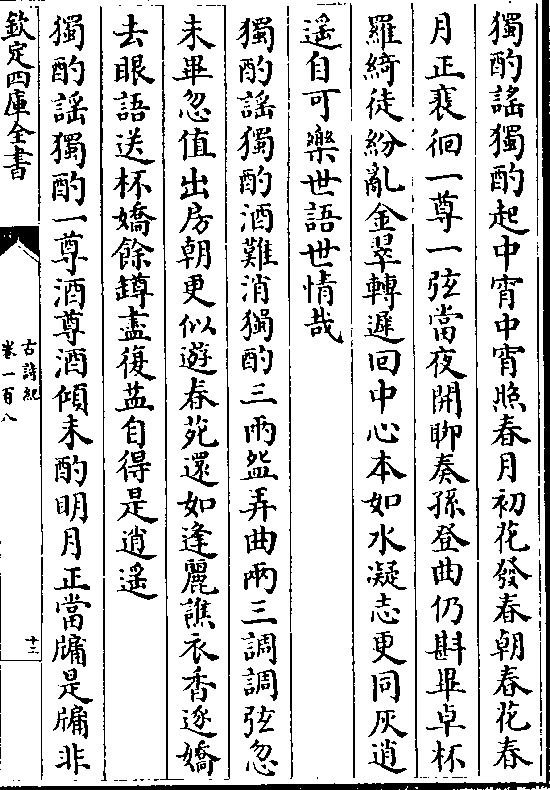 獨酌謡獨酌起中宵中宵照春月初花發春朝春花春
月正裵徊一尊一弦當夜開聊奏孫登曲仍斟畢卓杯
羅綺徒紛亂金翠轉遲回中心本如水凝志更同灰逍
遥自可樂世語世情哉
獨酌謡獨酌酒難消獨酌三兩盌弄曲兩三調調弦忽
未畢忽值出房朝更似遊春苑還如逢麗譙衣香逐嬌
去眼語送杯嬌餘罇盡復益自得是逍遥
獨酌謡獨酌一尊酒尊酒傾未酌明月正當牗是牗非
欽定四庫全書
古詩紀
卷一百八
十三